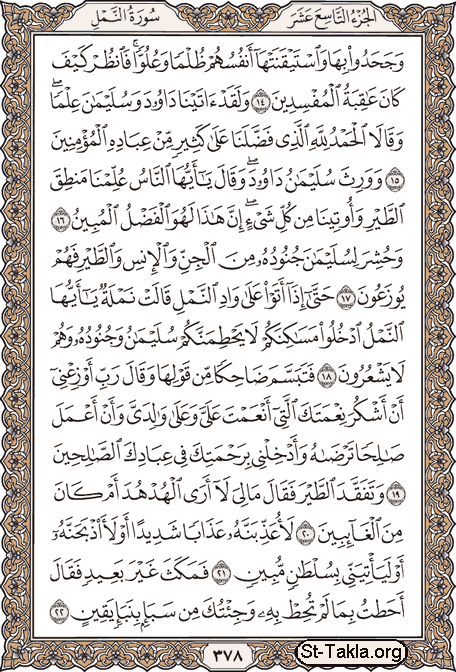 سُورَةُ النَّمْلِ
الجُزْءُ التَّاسِعَ عَشَرَ
وَجَحَدُوا۟ بِهَا وَٱسْتَيْقَنَتْهَآ أَنفُسُهُمْ ظُلْمًا وَعُلُوًّا ۚ فَٱنظُرْ كَيْفَ
كَانَ عَٰقِبَةُ ٱلْمُفْسِدِينَ ١٤ وَلَقَدْ ءَاتَيْنَا دَاوُۥدَ وَسُلَيْمَٰنَ عِلْمًا ۖ
وَقَالَا ٱلْحَمْدُ لِلَّهِ ٱلَّذِى فَضَّلَنَا عَلَىٰ كَثِيرٍ مِّنْ عِبَادِهِ ٱلْمُؤْمِنِينَ
١٥ وَوَرِثَ سُلَيْمَٰنُ دَاوُۥدَ ۖ وَقَالَ يَٰٓأَيُّهَا ٱلنَّاسُ عُلِّمْنَا مَنطِقَ
ٱلطَّيْرِ وَأُوتِينَا مِن كُلِّ شَىْءٍ ۖ إِنَّ هَٰذَا لَهُوَ ٱلْفَضْلُ ٱلْمُبِينُ ١٦
وَحُشِرَ لِسُلَيْمَٰنَ جُنُودُهُۥ مِنَ ٱلْجِنِّ وَٱلْإِنسِ وَٱلطَّيْرِ فَهُمْ
يُوزَعُونَ ١٧ حَتَّىٰٓ إِذَآ أَتَوْا۟ عَلَىٰ وَادِ ٱلنَّمْلِ قَالَتْ نَمْلَةٌ يَٰٓأَيُّهَا
ٱلنَّمْلُ ٱدْخُلُوا۟ مَسَٰكِنَكُمْ لَا يَحْطِمَنَّكُمْ سُلَيْمَٰنُ وَجُنُودُهُۥ وَهُمْ
لَا يَشْعُرُونَ ١٨ فَتَبَسَّمَ ضَاحِكًا مِّن قَوْلِهَا وَقَالَ رَبِّ أَوْزِعْنِىٓ
أَنْ أَشْكُرَ نِعْمَتَكَ ٱلَّتِىٓ أَنْعَمْتَ عَلَىَّ وَعَلَىٰ وَٰلِدَىَّ وَأَنْ أَعْمَلَ
صَٰلِحًا تَرْضَىٰهُ وَأَدْخِلْنِى بِرَحْمَتِكَ فِى عِبَادِكَ ٱلصَّٰلِحِينَ
١٩ وَتَفَقَّدَ ٱلطَّيْرَ فَقَالَ مَا لِىَ لَآ أَرَى ٱلْهُدْهُدَ أَمْ كَانَ
مِنَ ٱلْغَآئِبِينَ ٢٠ لَأُعَذِّبَنَّهُۥ عَذَابًا شَدِيدًا أَوْ لَأَا۟ذْبَحَنَّهُۥٓ
أَوْ لَيَأْتِيَنِّى بِسُلْطَٰنٍ مُّبِينٍ ٢١ فَمَكَثَ غَيْرَ بَعِيدٍ فَقَالَ
أَحَطتُ بِمَا لَمْ تُحِطْ بِهِۦ وَجِئْتُكَ مِن سَبَإٍۭ بِنَبَإٍ يَقِينٍ ٢٢
٣٧٨
St-Takla.org